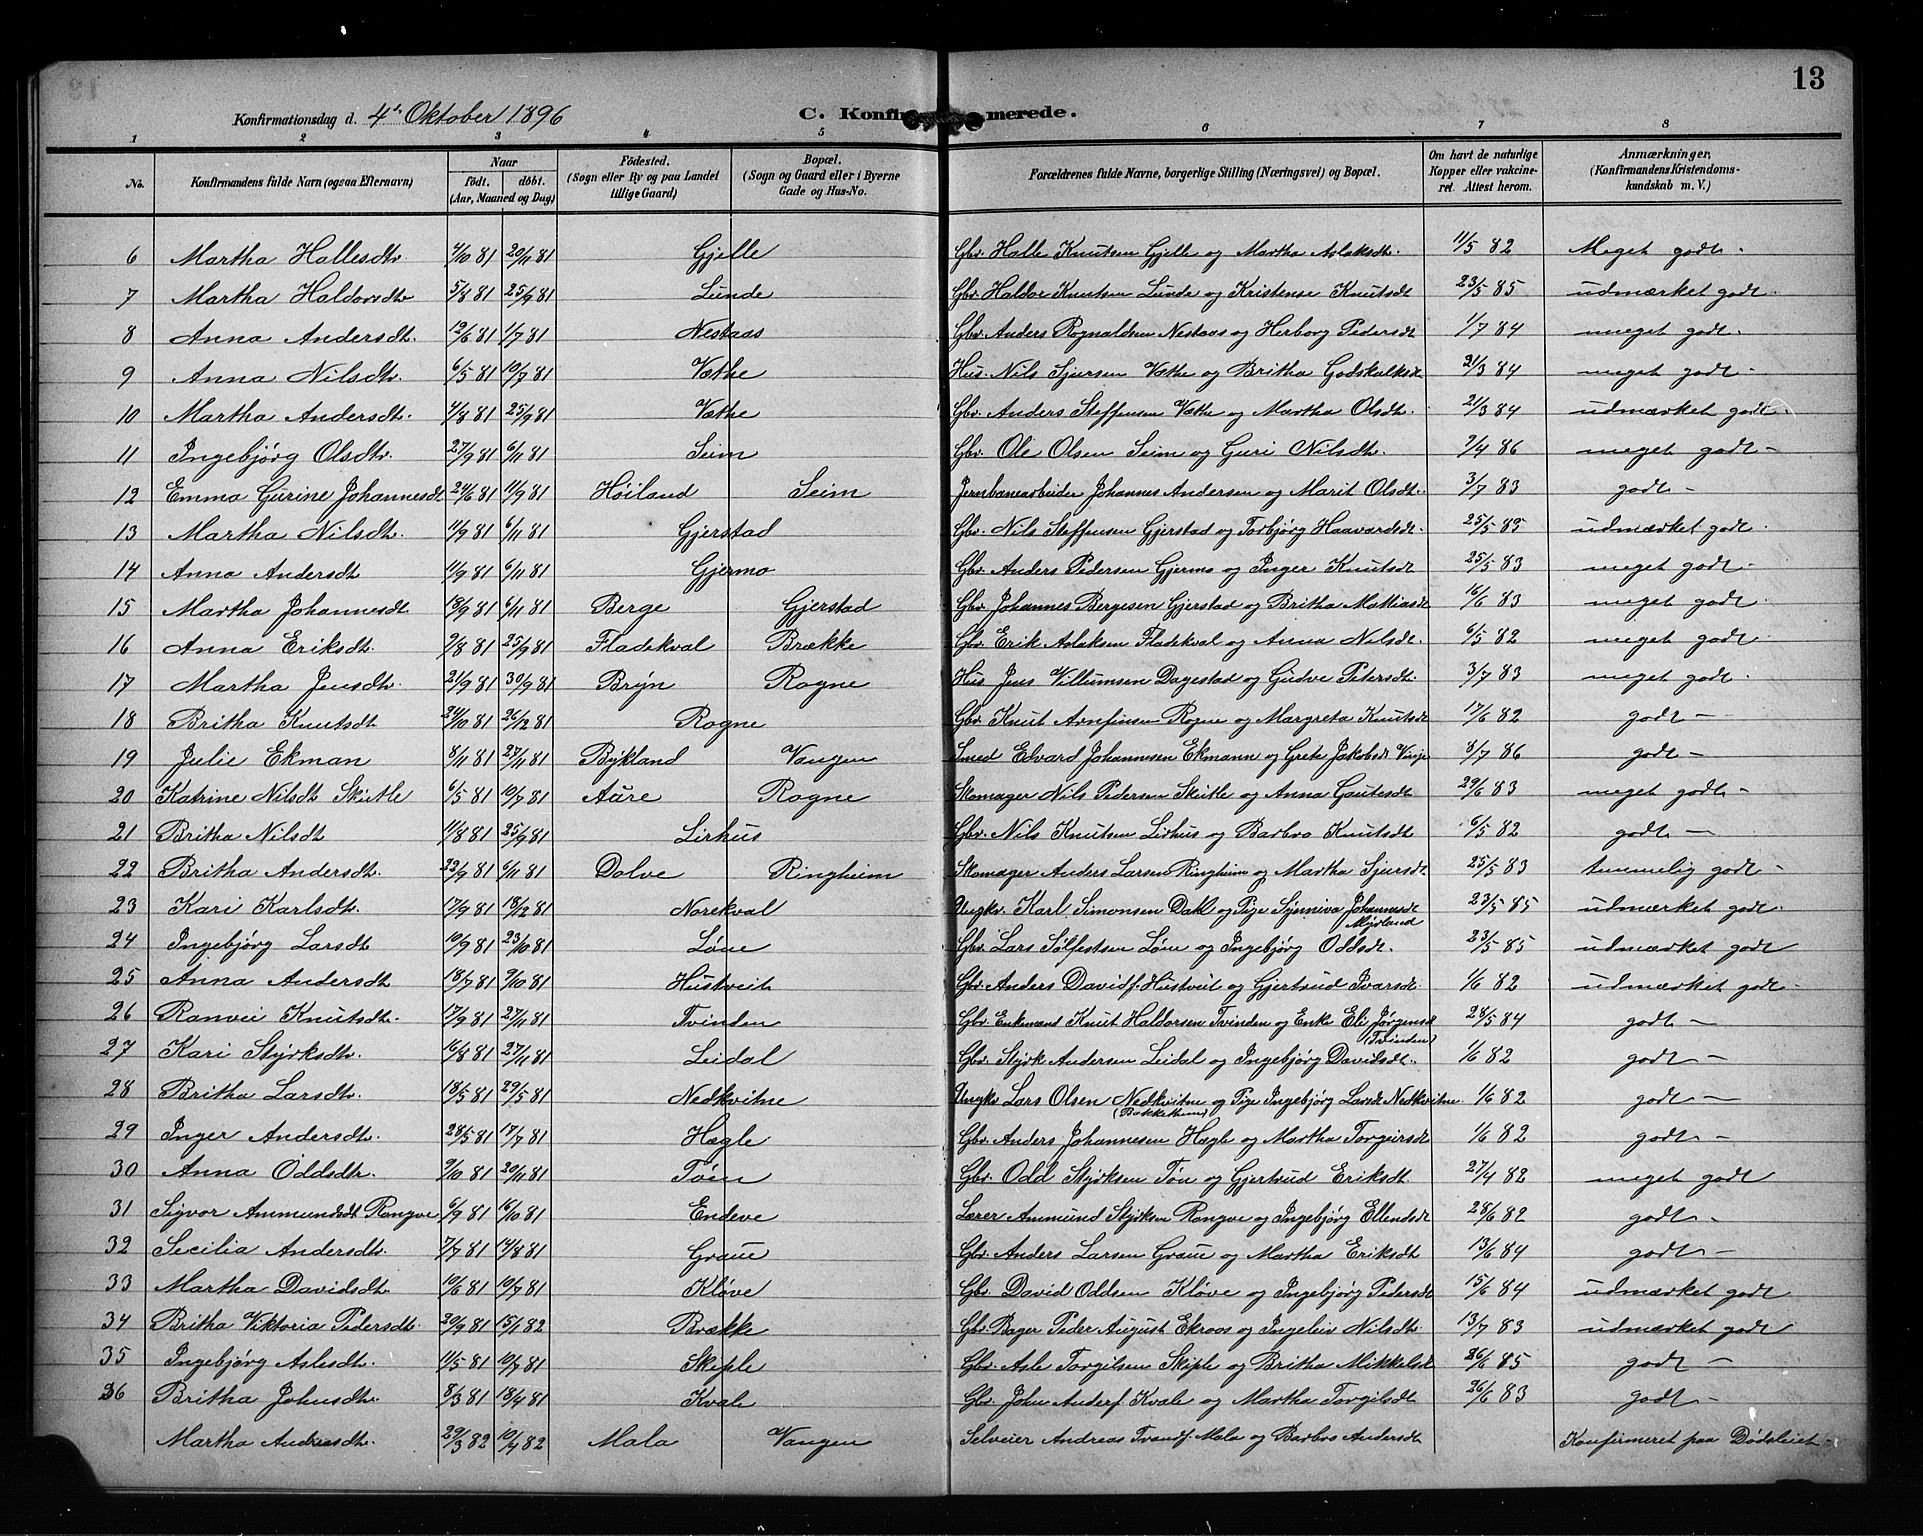 13
Konfirmationsdag d. 4de Oktober 1896 C. Konfirmerede.
1 2 3 4 5 6 7 8
No. Konfirmandens fulde Navn (ogsaa Efternavn) Naar født. døbt. (Aar, Maaned og Dag) Fødested. (Sogn eller By og paa Landet tillige Gaard) Bopæl. (Sogn og Gaard eller i Byerne Gade og Hus-No. Forældrenes fulde Navne, borgerlige Stilling (Næringsvei) og Bopæl. Om havt de naturlige Kopper eller vakcineret. Attest herom. Anmærkninger, (Konfirmandens Kristendomskundskab m. V.)
6 Martha Hallesdtr. 4/10 81 20/11 81 Gjelle Gbr. Halle Knutsen Gjelle og Martha Aslaksdt. 11/5 82 Meget godt -
7 Martha Haldorsdtr 5/8 81 25/9 81 Lunde Gbr. Haldor Knutsen Lunde og Kristense Knutsdt 23/5 85 udmærket godt.
8 Anna Andersdt. 12/6 81 1/7 81 Nestaas Gbr. Anders Rognaldsen Nestaas og Herborg Pedersdt 1/7 84 meget godt -
9 Anna Nilsdtr. 6/5 81 10/7 81 Væthe Hus. Nils Sjursen Væthe og Britha Godskalksdt 21/3 84 meget godt -
10 Martha Andersdt. 4/8 81 25/9 81 Væthe Gbr. Anders Steffensen Væthe og Martha Olsdt. 21/3 84 udmærket godt.
11 Ingebjørg Olsdtr. 27/9 81 6/11 81 Seim Gbr. Ole Olsen Seim og Guri Nilsdt. 2/4 86 meget godt -
12 Emma Gurine Johannesdt 24/6 81 11/9 81 Høiland Seim Jernbanearbeider Johannes Andersen og Marit Olsdt. 3/7 83 godt -
13 Martha Nilsdt. 11/9 81 6/11 81 Gjerstad Gbr. Nils Steffensen Gjerstad og Torbjørg Haavardsdt. 25/5 83 udmærket godt.
14 Anna Andersdt 11/9 81 6/11 81 Gjermo Gbr. Anders Pedersen Gjermo og Inger Knutsdt 25/5 83 meget godt.
15 Martha Johannesdt 13/9 81 6/11 81 Berge Gjerstad Gbr. Johannes Bergesen Gjerstad og Britha Mattiasdt 16/6 83 meget godt.
16 Anna Eriksdt. 9/8 81 25/9 81 Fladekval Brække Gbr. Erik Aslaksen Fladekval og Anna Nilsdt. 6/5 82 meget godt.
17 Martha Jensdt. 21/9 81 30/9 81 Bryn Rogne Hus Jens Villumsen Dagestad og Gudve Petersdt. 3/7 83 meget godt.
18 Britha Knutsdt 24/10 81 26/12 81 Rogne Gbr. Knut Arnfinsen Rogne og Margreta Knutsdt 17/6 82 godt -
19 Julie Ekman 8/11 81 27/11 81 Bykland Vangen Smed Edvard Johannesen Ekmann og Grete Jakobsdt Vinje 8/7 86 godt -
20 Katrine Nilsdt Skutle 6/5 81 10/7 81 Aure Rogne Skomager Nils Pedersen Skutle og Anna Gautesdt 29/6 83 meget godt -
21 Britha Nilsdt 11/8 81 25/9 81 Lirhus Gbr. Nils Knutsen Lirhus og Barbro Knutsdt 6/5 82 godt -
22 Britha Andersdt. 22/9 81 6/11 81 Dolve Ringheim Skomager Anders Larsen Ringheim og Martha Sjursdt 25/5 83 temmelig godt -
23 Kari Karlsdt. 17/9 81 18/12 81 Norekval Ungkr. Karl Simonsen Dahl og Pige Synniva Johannesdt Myrland 23/5 85 udmærket godt.
24 Ingebjørg Larsdt 10/9 81 23/10 81 Løne Gbr. Lars Sølfestsen Løne og Ingebjørg Oddsdt. 23/5 85 udmærket godt
25 Anna Andersdt 18/7 81 9/10 81 Hustveit Gbr. Anders Davidf. Hustveit og Gjertrud Ivarsdt. 1/6 82 udmærket godt -
26 Ranvei Knutsdt. 17/9 81 27/11 81 Tvinden Gbr. Enkemand Knut Haldorsen Tvinden og Enke Eli Jørgensdt (Tvinden) 28/5 84 godt -
27 Kari Styrksdt. 16/8 81 27/11 81 Leidal Gbr. Styrk Andersen Leidal og Ingebjørg Davidsdt. 1/6 82 godt -
28 Britha Larsdt. 18/5 81 29/5 81 Nedkvitne Ungkr Lars Olsen Nedkvitne (Bakkethun) og Pige Ingebjørg Larsdt Nedkvitne. 1/6 82 godt -
29 Inger Andersdt. 28/5 81 17/7 81 Hægle Gbr. Anders Johannesen Hægle og Martha Torgeirsdt 1/6 82 godt -
30 Anna Oddsdtr. 9/10 81 20/11 81 Tøn Gbr. Odd Styrksen Tøn og Gjertrud Eriksdt. 27/4 82 meget godt
31 Sigvor Ammundsdt Rongve 6/9 81 16/10 81 Endeve Lærer Ammund Styrksen Rongve og Ingebjørg Ellendsdt 28/6 82 godt -
32 Secilia Andersdt. 7/7 81 14/8 81 Graue Gbr. Anders Larsen Graue og Martha Eriksdt 13/6 84 godt -
33 Martha Davidsdt. 10/6 81 10/7 81 Kløve Gbr. David Oddsen Kløve og Ingebjørg Pedersdt 15/6 84 udmærket godt
34 Britha Viktoria Pedersdt. 20/9 81 15/1 82 Brække Gbr. Bager Peder August Ekroos og Ingeleiv Nilsdt 13/7 83 udmærket godt
35 Ingebjørg Aslesdt. 11/5 81 10/7 81 Skiple Gbr. Asle Torgilsen Skiple og Britha Mikkelsdt 26/6 85 godt -
36 Britha Johnsdt. 8/3 81 18/4 81 Kvale Gbr. John Anderf. Kvale og Martha Torgilsdt 26/6 83 godt -
Martha Andreasdt. 29/3 82 10/4 82 Mala Vangen Selveier Andreas Tvandf. Mala og Barbro Andersdt Konfirmeret paa Dødsleiet -